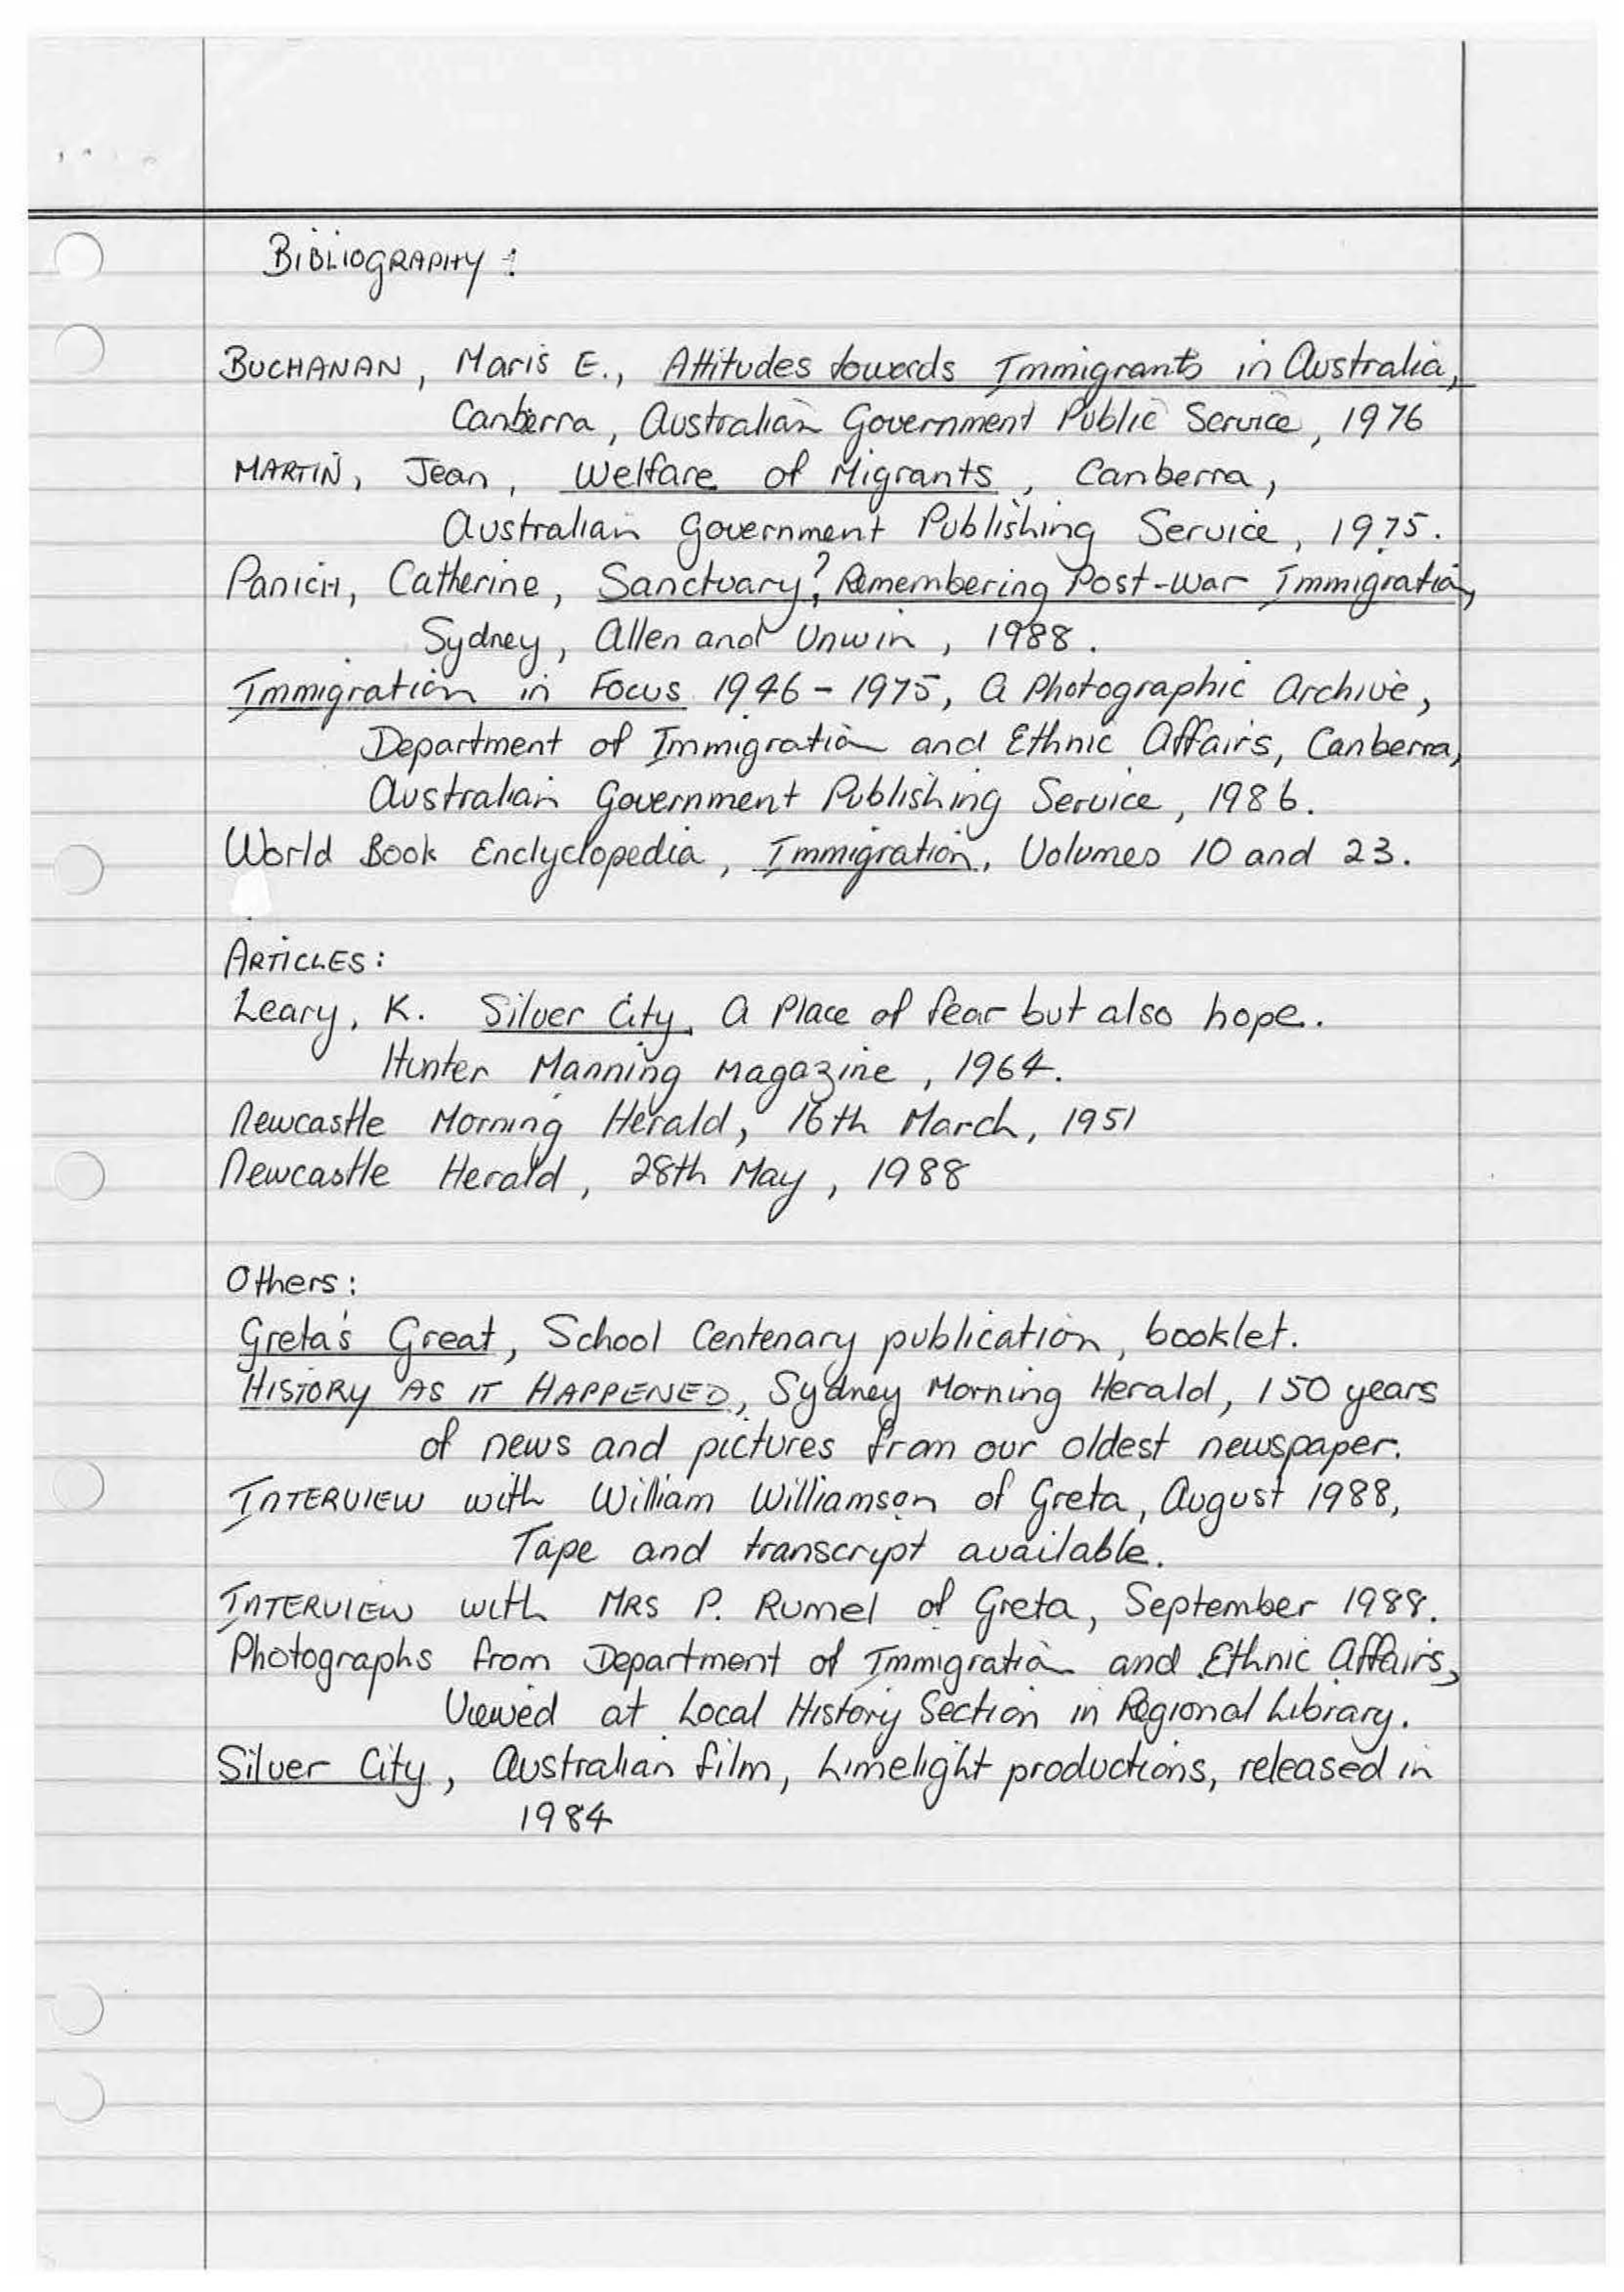 BIBLIOGRAPHY :
BUCHANAN, Maris E., Attitudes towards Immigrants in Australia,
Canberra, Australian Government Public Service, 1976
MARTIN, Jean, Welfare of Migrants, Canberra,
Australian Government Publishing Service, 1975.
PANICH, Catherine, Sanctuary? Remembering Post-War Immigration,
Sydney, Allen and Unwin, 1988.
Immigration in Focus 1946 - 1975, A Photographic Archive,
Department of Immigration and Ethnic Affairs, Canberra,
Australian Government Publishing Service, 1986.
World Book Enclyclopedia, Immigration, Volumes 10 and 23.
ARTICLES:
Leary, K. Silver City, A Place of fear but also hope.
Hunter Manning Magazine, 1964.
Newcastle Morning Herald, 16th March, 1951
Newcastle Herald, 28th May, 1988
Others:
Greta's Great, School Centenary publication, booklet.
HISTORY AS IT HAPPENED, Sydney Morning Herald, 150 years
of news and pictures from our oldest newspaper.
INTERVIEW with William Williamson of Greta, August 1988,
Tape and transcript available.
INTERVIEW with MRS P. Rumel of Greta, September 1988.
Photographs from Department of Immigration and Ethnic Affairs,
Viewed at Local History Section in Regional Library.
Silver City, Australian film, Limelight productions, released in
1984